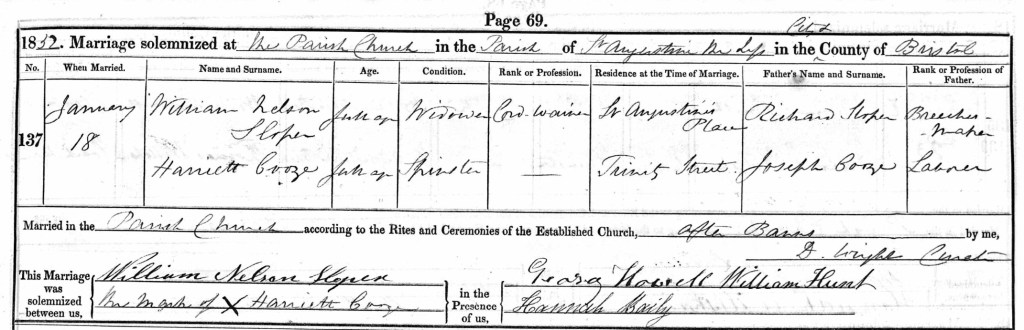 Page 69.
1852. Marriage solemnized at the Parish Church in the Parish of St Augustine the Less in the City & County of Bristol
No. When Married. Name and Surname. Age. Condition. Rank or Profession. Residence at the Time of Marriage. Father's Name and Surname. Rank or Profession of Father.
137 January 18 William Nelson Sloper full age Widower Cordwainer St Augustine's Place Richard Sloper Breeches-maker
Harriett Cooze full age Spinster — Trinity Street. Joseph Cooze Laborer
Married in the Parish Church according to the Rites and Ceremonies of the Established Church, after Banns by me,
D. Wright Curate
This Marriage was solemnized between us, William Nelson Sloper
The Mark of X Harriett Cooze
in the Presence of us, George Howell William Hunt
Hannah Baily